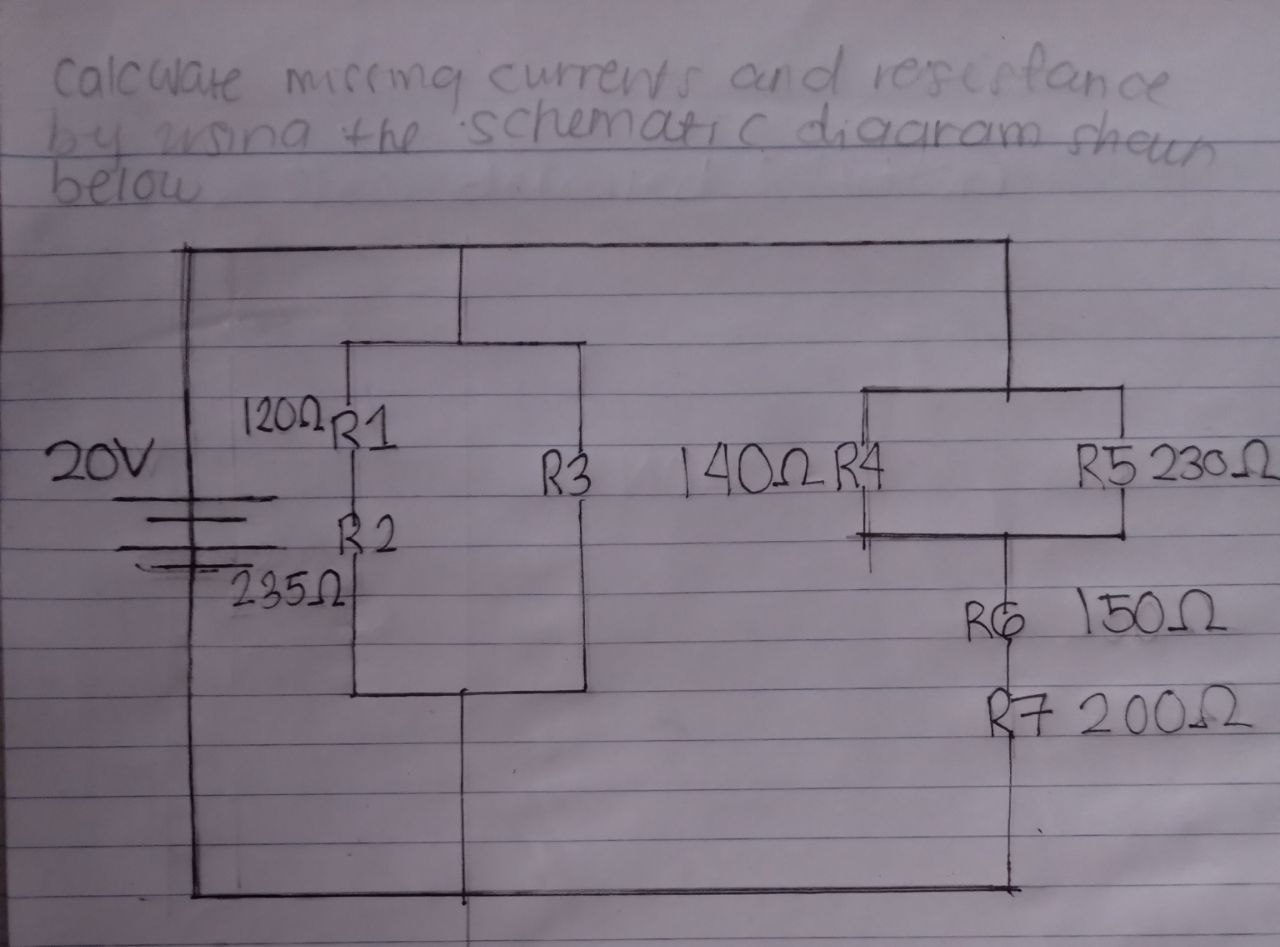 calculate missing currents and resistance
by using the schematic diagram shown
below
120Ω R1
20V
R3
140Ω R4
R5 230Ω
R2
235Ω
R6 150Ω
R7 200Ω